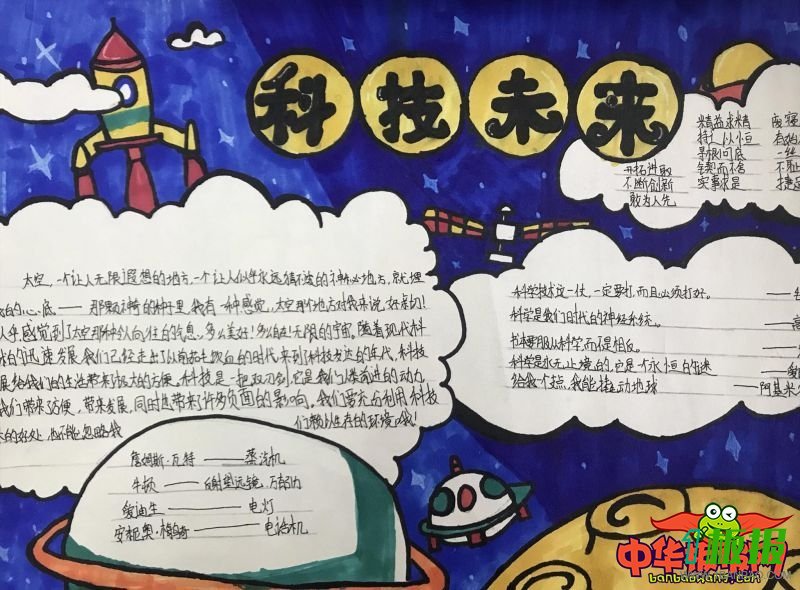 科技未来
精益求精
持之以恒
寻根问底
开拓进取 锲而不舍
不断创新 实事求是
敢为人先
太空,一个让人无限遐想的地方,一个让人似乎永远猜不透的神秘地方,就埋
的心底——那颗神奇的种子里我有一种感觉,太空那个地方对我来说好亲切!
乎感觉到了太空那种令人向往的气息,多么美好!多么的无限的宇宙。随着现代科
的迅速发展,我们已经走出了从前茹毛饮血的时代来到了科技发达的年代。科技
展给我们的生活带来极大的方便。科技是一把双刃剑,它是我们人类前进的动力
我们带来方便,带来发展,同时也带来许多负面的影响,我们要充分利用科技
的好处,也不能忽略我们赖以生存的环境哦!
科学技术这一仗,一定要打,而且必须打好。
科学是我们时代的神经系统。
书本要服从科学,而不是相反。
科学是永无止境的,它是一个永恒的谜
给我个支点,我能撬动地球 ——阿基米
詹姆斯·瓦特——蒸汽机
牛顿——反射望远镜,万有引力
爱迪生——电灯
安东尼奥·梅乌奇——电话机
中华
报网
banbaowang.com